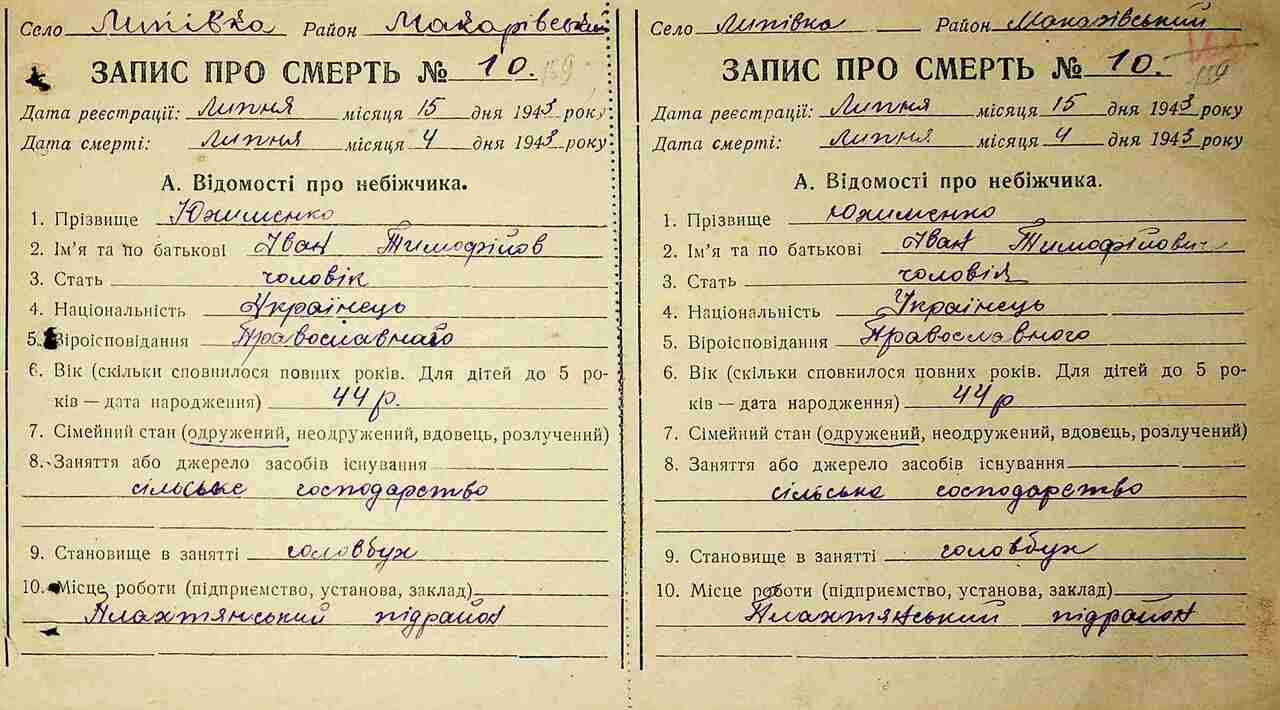 Село Липівка Район Макарівський
ЗАПИС ПРО СМЕРТЬ № 10. 159
Дата реєстрації: Липня місяця 15 дня 1943 року
Дата смерті: Липня місяця 4 дня 1943 року
А. Відомості про небіжчика.
1. Прізвище Юхименко
2. Ім'я та по батькові Іван Тимофійов
3. Стать чоловік
4. Національність Українець
5. Віроісповідання Православного
6. Вік (скільки сповнилося повних років. Для дітей до 5 ро-
ків — дата народження) 44 р.
7. Сімейний стан (одружений, неодружений, вдовець, розлучений)
8. Заняття або джерело засобів існування
сільське господарство
9. Становище в занятті головбух
10. Місце роботи (підприємство, установа, заклад)
Плахтянський підрайон
Село Липівка Район Макарівський
ЗАПИС ПРО СМЕРТЬ № 10.
Дата реєстрації: Липня місяця 15 дня 1943 року
Дата смерті: Липня місяця 4 дня 1943 року
А. Відомості про небіжчика.
1. Прізвище Юхименко
2. Ім'я та по батькові Іван Тимофійович
3. Стать чоловік
4. Національність Українець
5. Віроісповідання Православного
6. Вік (скільки сповнилося повних років. Для дітей до 5 ро-
ків — дата народження) 44 р
7. Сімейний стан (одружений, неодружений, вдовець, розлучений)
8. Заняття або джерело засобів існування
сільське господарство
9. Становище в занятті головбух
10. Місце роботи (підприємство, установа, заклад)
Плахтянський підрайон